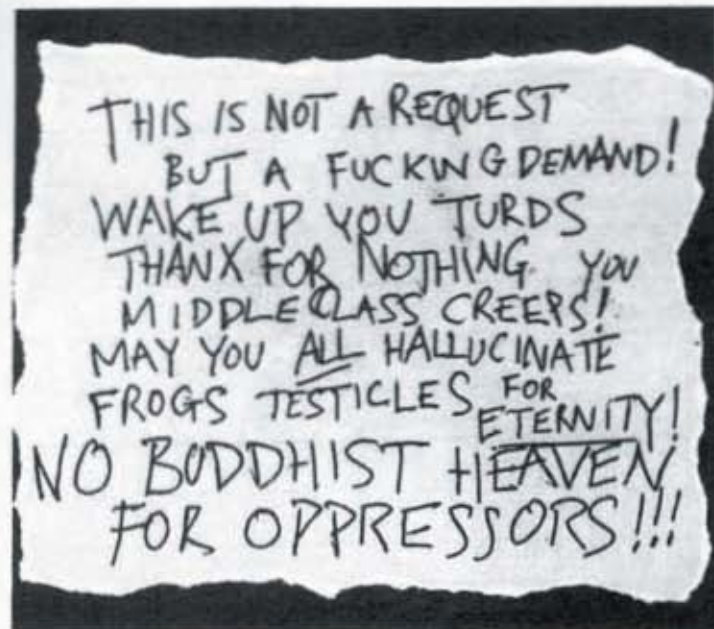 THIS IS NOT A REQUEST
BUT A FUCKING DEMAND!
WAKE UP YOU TURDS
THANX FOR NOTHING YOU
MIDDLE CLASS CREEPS!
MAY YOU ALL HALLUCINATE
FROGS TESTICLES FOR
ETERNITY!
NO BODDHIST HEAVEN
FOR OPPRESSORS!!!